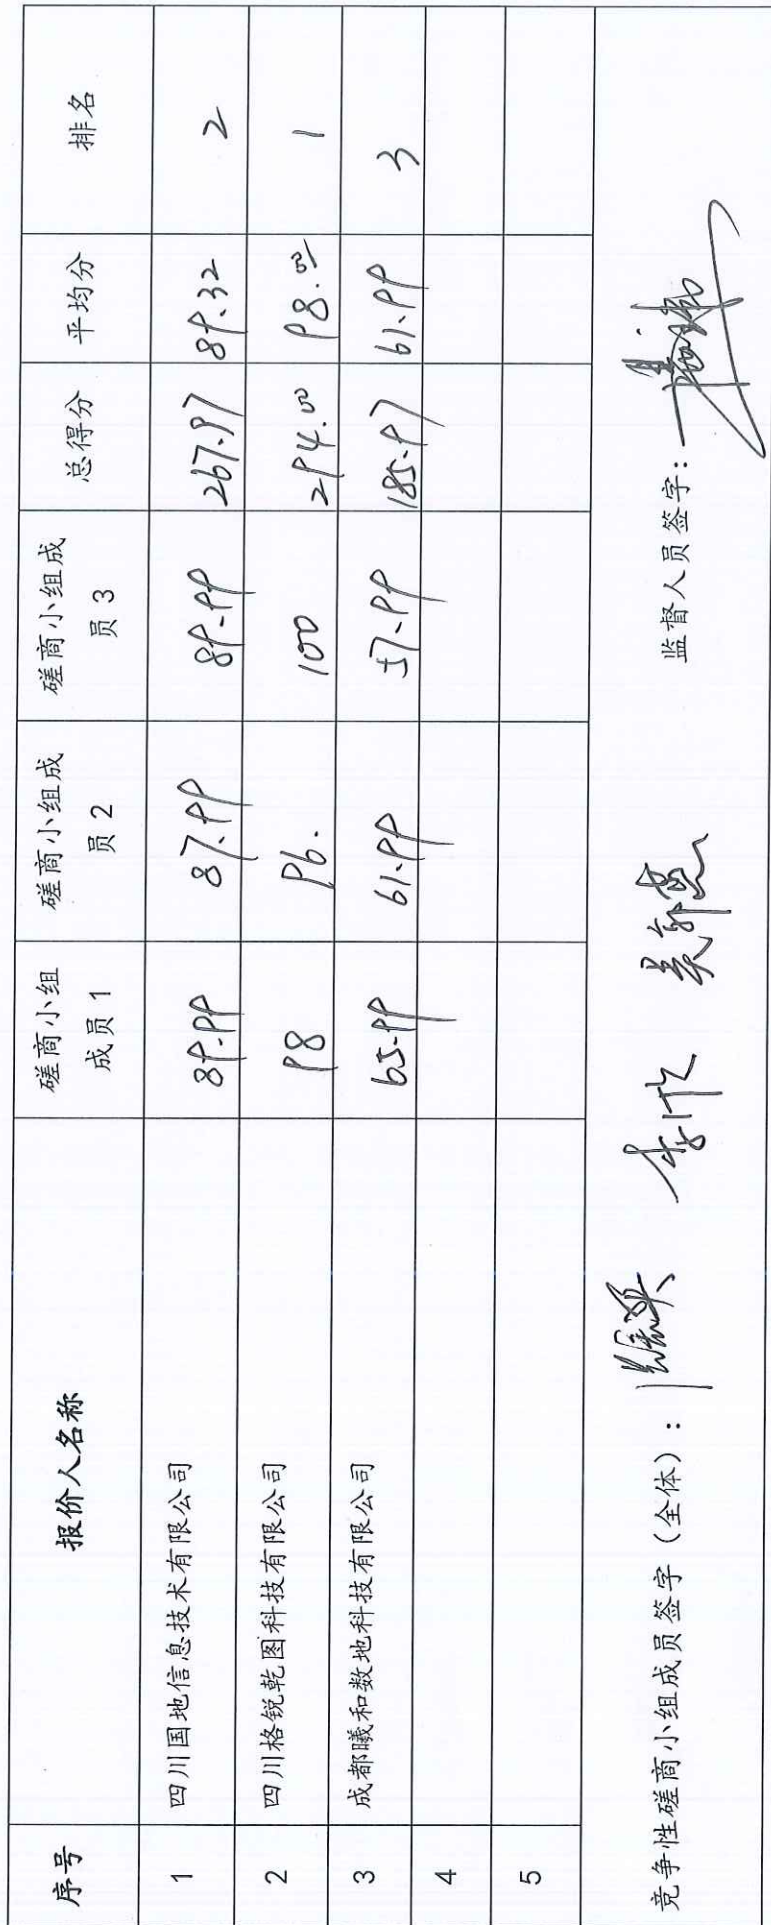 序号 报价人名称 磋商小组成员1 磋商小组成员2 磋商小组成员3 总得分 平均分 排名
1 四川国地信息技术有限公司 89.99 87.99 89.99 267.97 89.32 2
2 四川格锐乾图科技有限公司 98 96. 100 294.00 98.00 1
3 成都曦和数地科技有限公司 65.99 61.99 57.99 185.97 61.99 3
4
5
竞争性磋商小组成员签字（全体）： 监督人员签字：